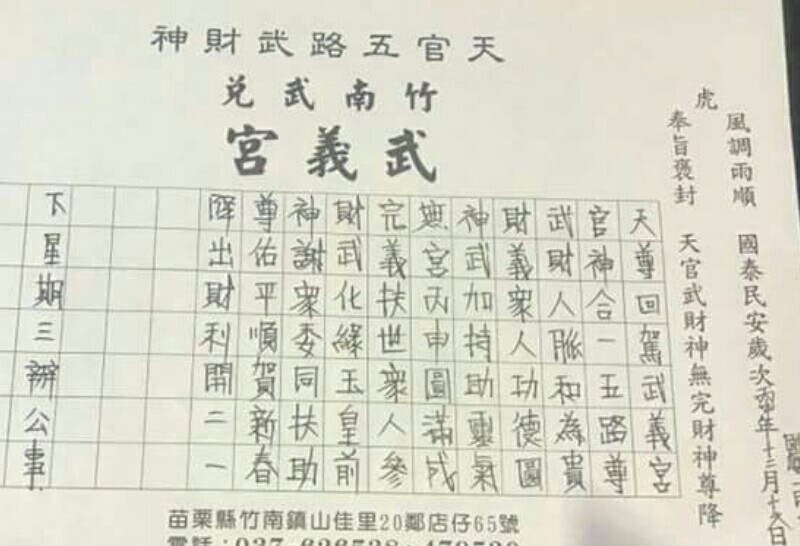 天官五路武財神
竹南武兌
武義宮
風調雨順 國泰民安歲次 年十二月十 日
虎
奉旨褒封 天官武財神無完財神尊降
天尊回駕武義宮
官神合一五路尊
武財人脈和為貴
財義眾人功德圓
神武加持助靈氣
無宮丙申圓滿成
完義扶世眾人參
財武化緣玉皇前
神謝眾委同扶助
尊佑平順賀新春
降出財利開二一
下星期三辦公事
苗栗縣竹南鎮山佳里20鄰店仔65號